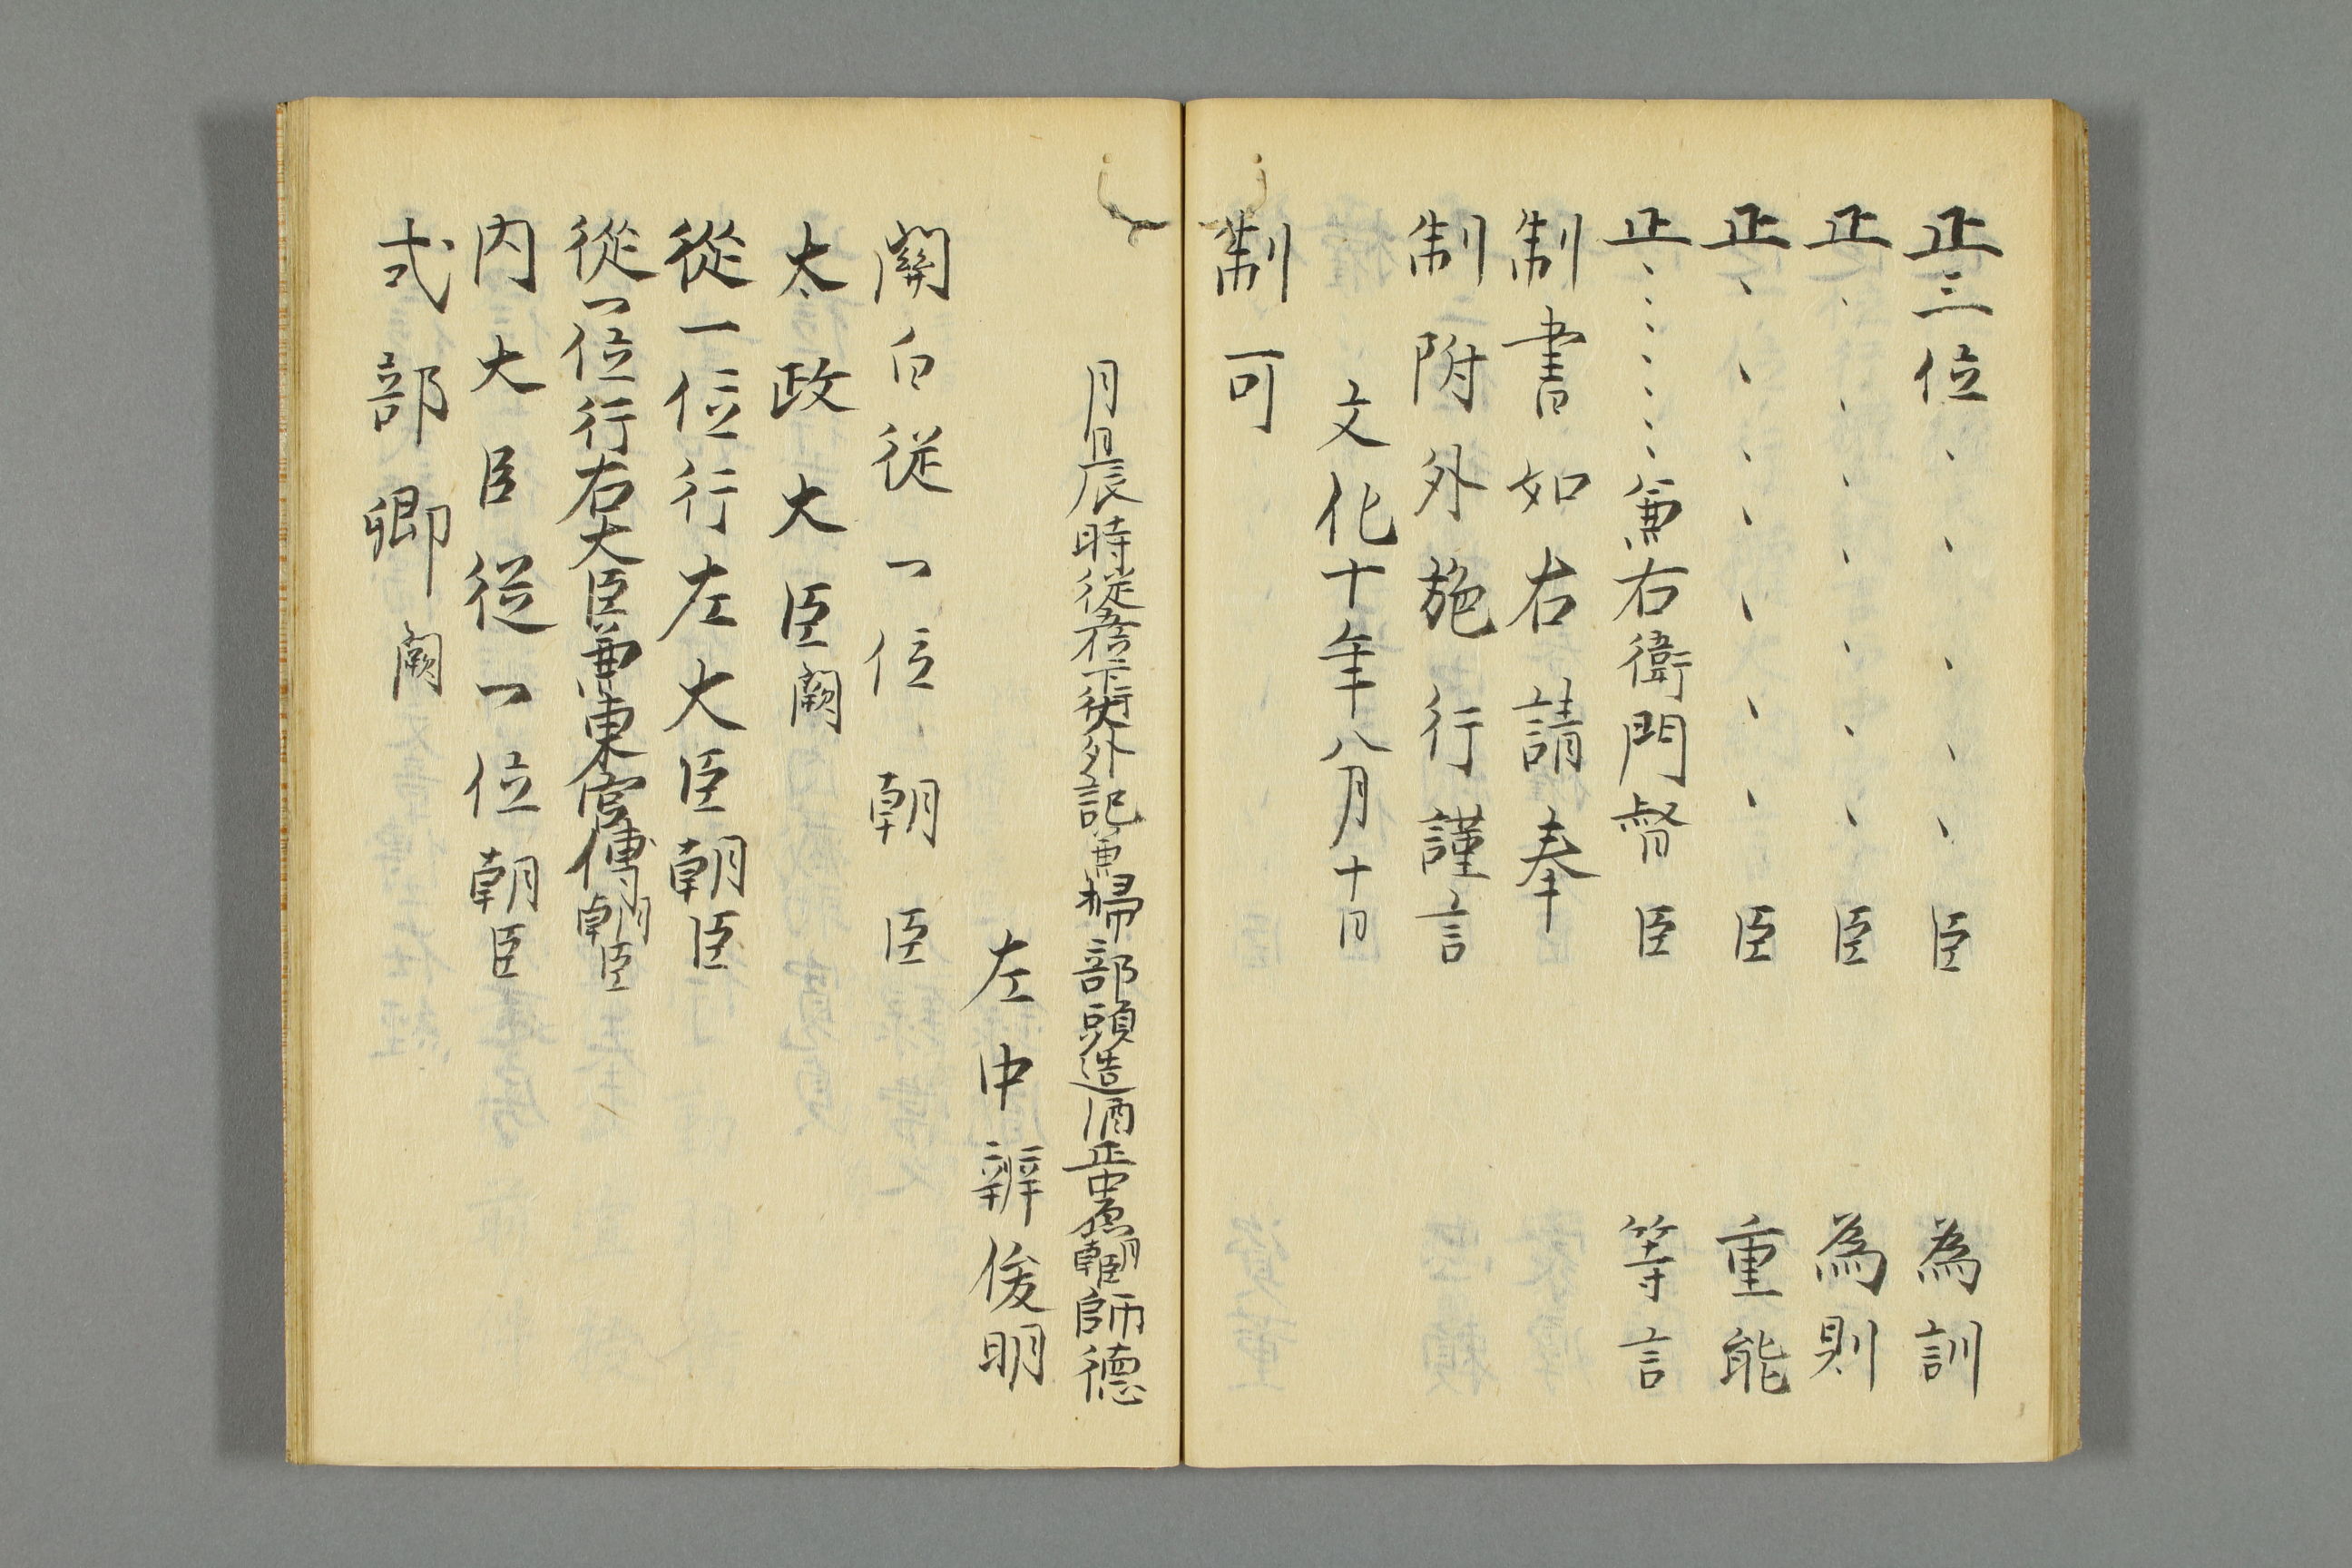 正三位、、、、、臣 為訓
正、、、、、、、臣 為則
正、、、、、、、臣 重能
正、、、、、、兼右衛門督臣 等言
制書如右請奉
制附外施行謹言
文化十年八月十日
制可
月日辰時従五位下行大外記兼掃部頭造酒正中原朝臣師徳
左中辨俊明
關白従一位朝臣
太政大臣闕
從一位行左大臣朝臣
從一位行右大臣兼東宮傅朝臣
内大臣従一位朝臣
式部卿闕